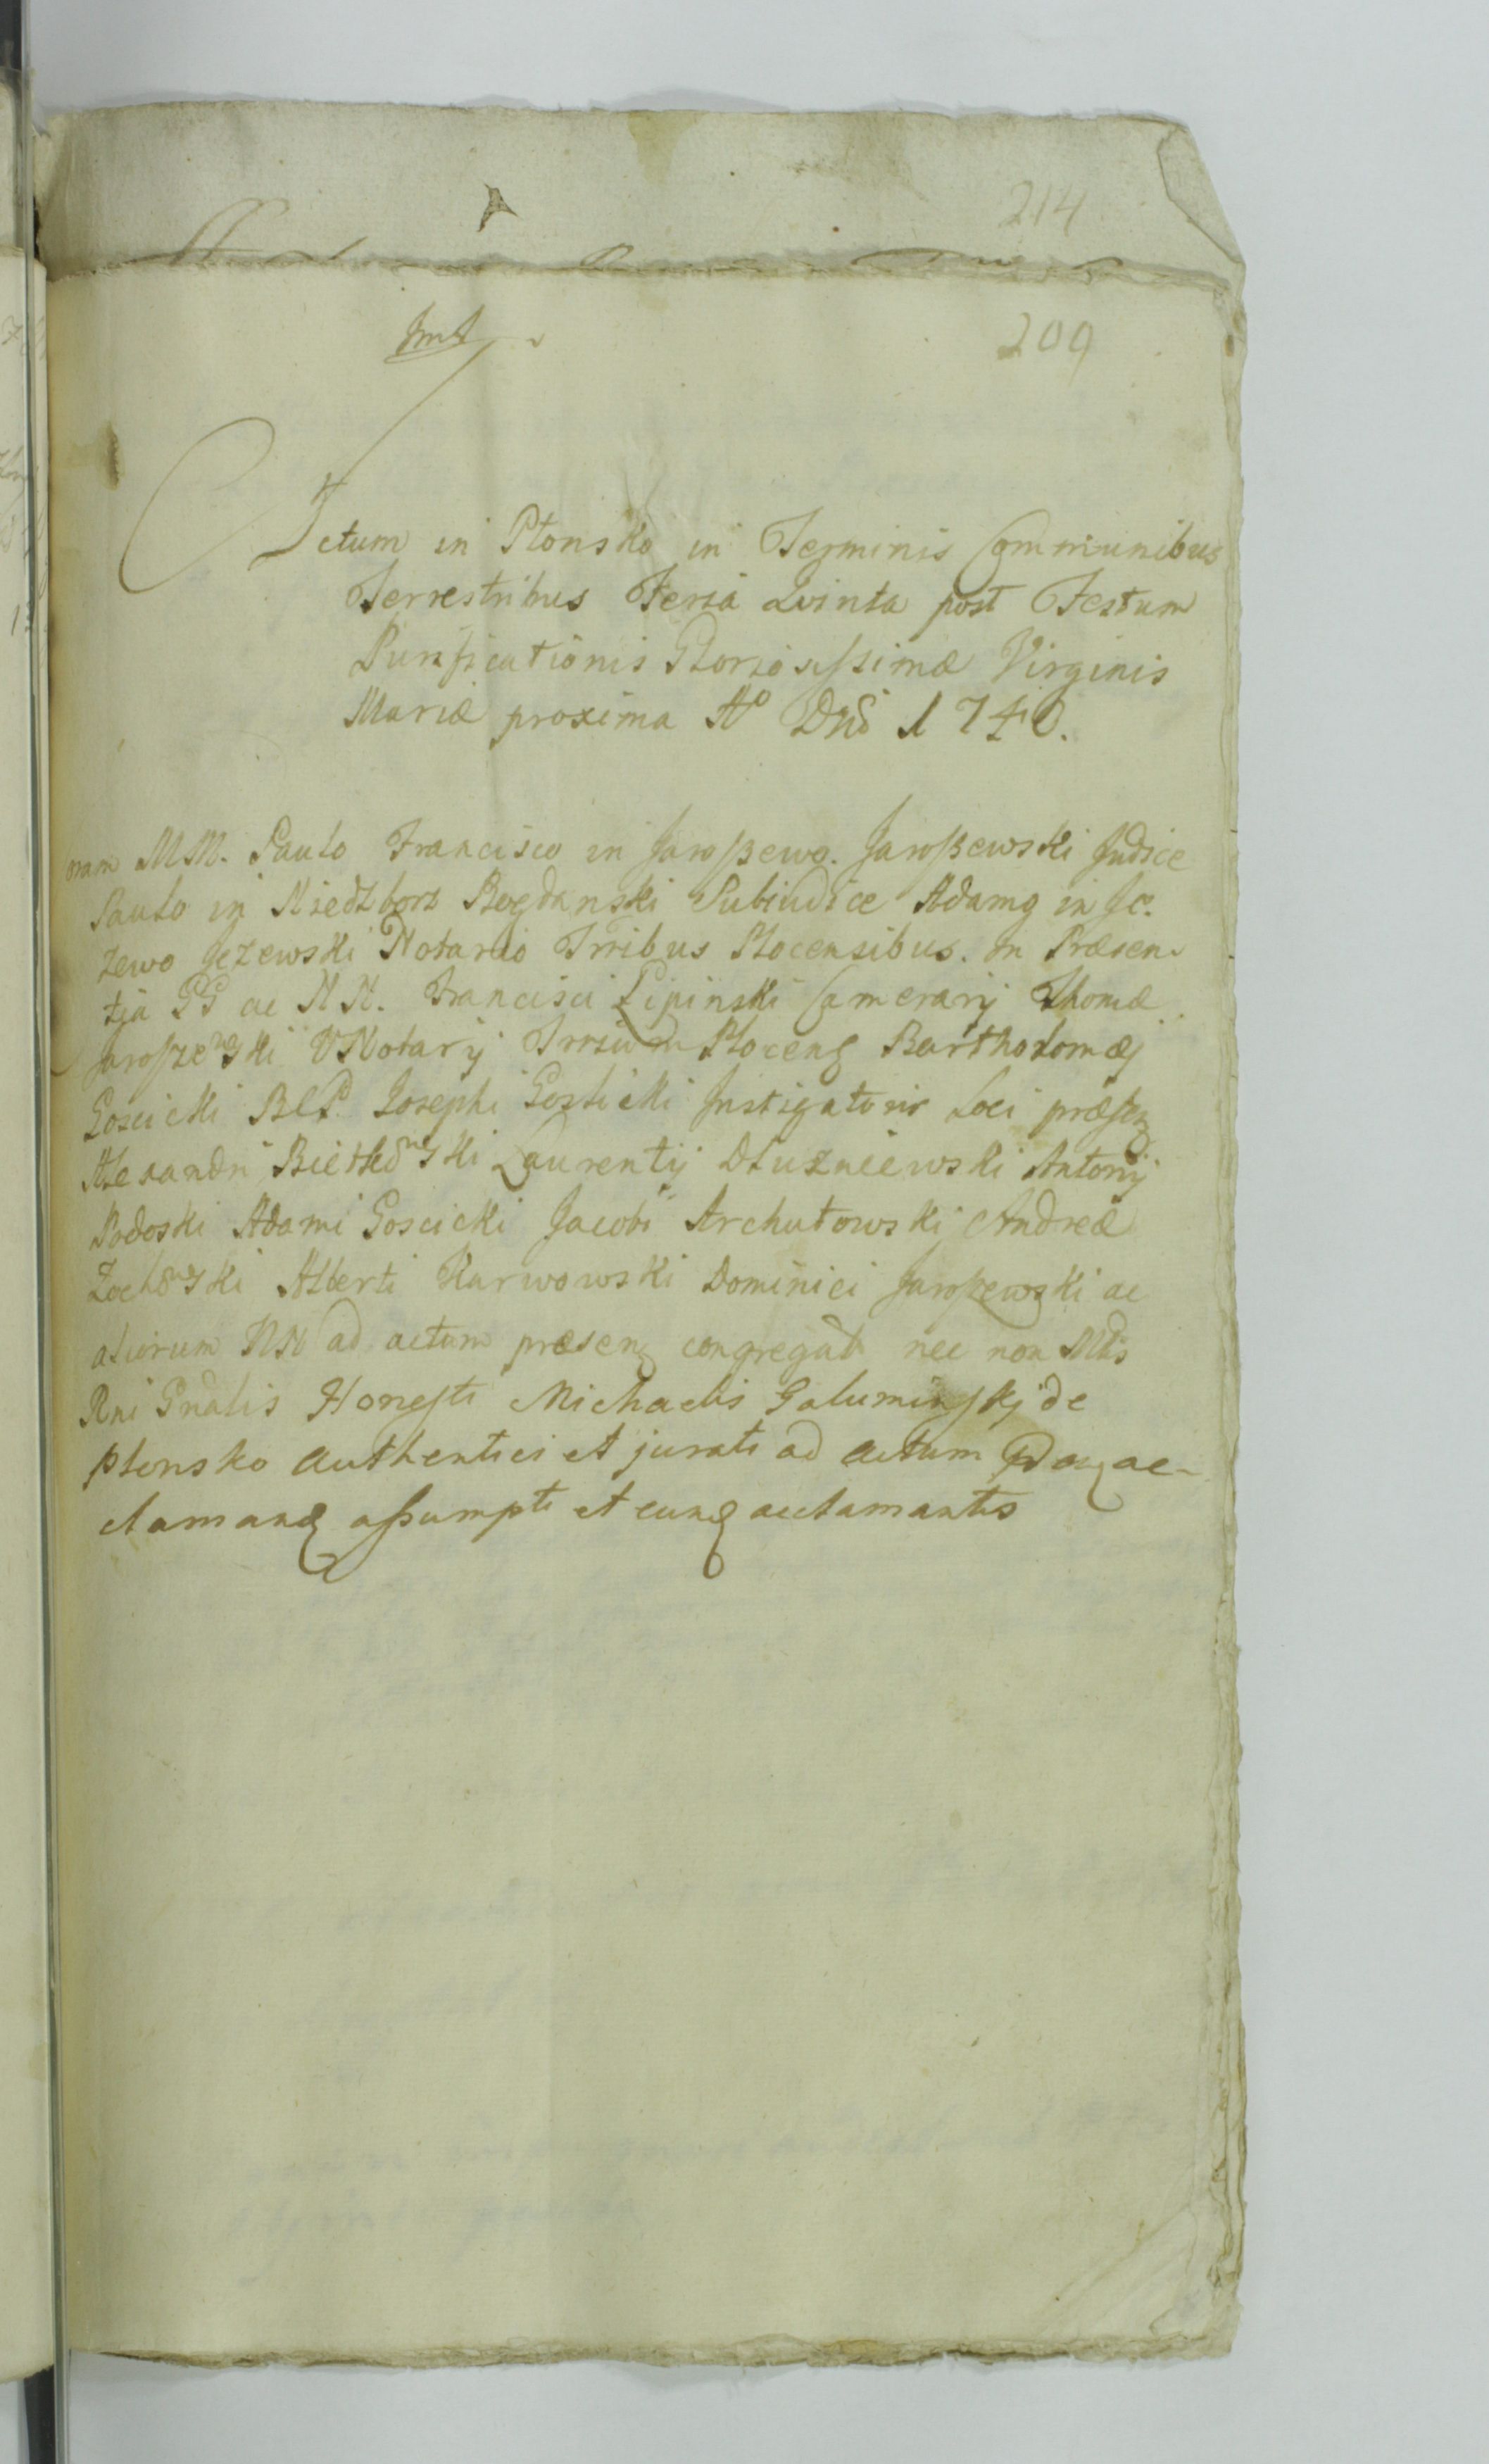 214
209
Actum in Płonsko in Terminis Communibus
Terrestribus Feria Quinta post Festum
Purificationis Gloriosissimæ Virginis
Mariæ proxima Aº Dni 1740.
ram MM. Paulo Francisco in Jaroszewo Jaroszewski Judice
Paulo in Niedzborz Bogdanski Subiudice Adamo in Je-
żewo Jeżewski Notario Trribus Plocensibus. In Præsen-
tia GG ac NN. Francisci Lipinski Camerarij Thomæ
Jaroszewski VNotarij Trrium Plocens Bartholomæj
Goscicki Josephi Instigatoris Loci præsens
Alexandri Laurentij Dłuzniewski Antonij
Podoski Adami Goscicki Jacobi Archutowski Andreæ
Zochowski Alberti Karwowski Dominici Jaroszewski ac
aliorum NN ad actum præsens congregat nec non Mtis
Rni Gnalis Honesti Michaelis de
Płonsko authentici et jurati ad actum ac-
clamand assumpti et eund acclamantis